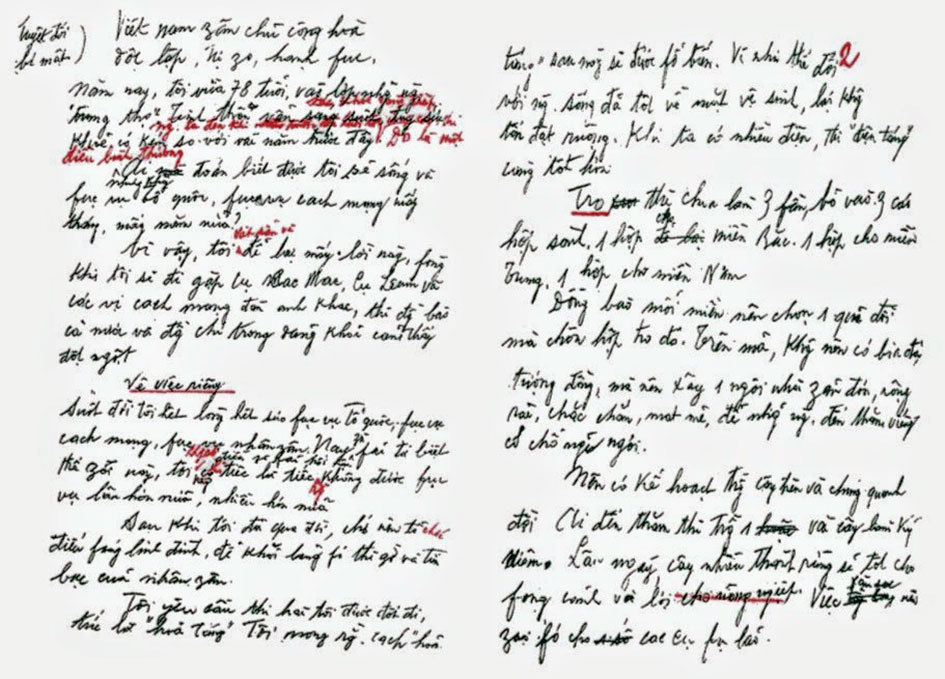 Tuyệt đối
bí mật )
Việt nam zân chủ cộng hoà
độc lập, tự zo, hạnh fúc,
Năm nay, tôi vừa 78 tuổi, vào lớp những ng.
"trung thọ". Tinh thần vẫn sáng suốt,
khoẻ có kém so với vài năm trước đây. Đó là một
điều bình thường
Ai mà đoán biết được tôi sẽ sống và
fục vụ tổ quốc, fục vụ cách mạng mấy
tháng, mấy năm nữa?
Vì vậy, tôi để lại mấy lời này, fòng
khi tôi sẽ đi gặp cụ Các Mác, cụ Lênin và
các vị cách mạng đàn anh khác, thì đ/bào
cả nước và đ/chí trong đảng khỏi cảm thấy
đột ngột
Về việc riêng
Suốt đời tôi hết lòng hết sức fục vụ Tổ quốc, fục vụ
cách mạng, fục vụ nhân zân. Nay zù fải từ biệt
thế zới này, tôi không có điều gì fải hối hận,
chỉ tiếc là tiếc không được fục
vụ lâu hơn nữa, nhiều hơn nữa
Sau khi tôi đã qua đời, chớ nên tổ chức
điếu fúng linh đình, để khỏi lãng fí thì zờ và tiền
bạc của nhân zân.
Tôi yêu cầu thi hài tôi được đốt đi,
tức là "hoả táng". Tôi mong rằng cách "hoả
2
táng" sau này sẽ được fổ biến. Vì như thế đối
với ng. sống đã tốt về mặt vệ sinh, lại không
tốn đất ruộng. Khi ta có nhiều điện, thì "điện táng"
càng tốt hơn
Tro thì chia làm 3 fần, bỏ vào 3 cái
hộp sành, 1 hộp cho miền Bắc. 1 hộp cho miền
Trung, 1 hộp cho miền Nam
Đồng bào mỗi miền nên chọn 1 quả đồi
mà chôn hộp tro đó. Trên mả, không nên có bia đá,
tượng đồng, mà nên xây 1 ngôi nhà zản đơn, rộng
rãi, chắc chắn, mát mẻ, để những ng. đến thăm viếng
có chỗ nghỉ ngơi.
Nên có kế hoạch trồng cây trên và chung quanh
đồi. Ai đến thăm thì trồng 1 vài cây làm kỷ
niệm. Lâu ngày, cây nhiều thành rừng sẽ tốt cho
fong cảnh và lợi cho nông nghiệp. Việc săn sóc nên
zao fó cho các cụ fụ lão.